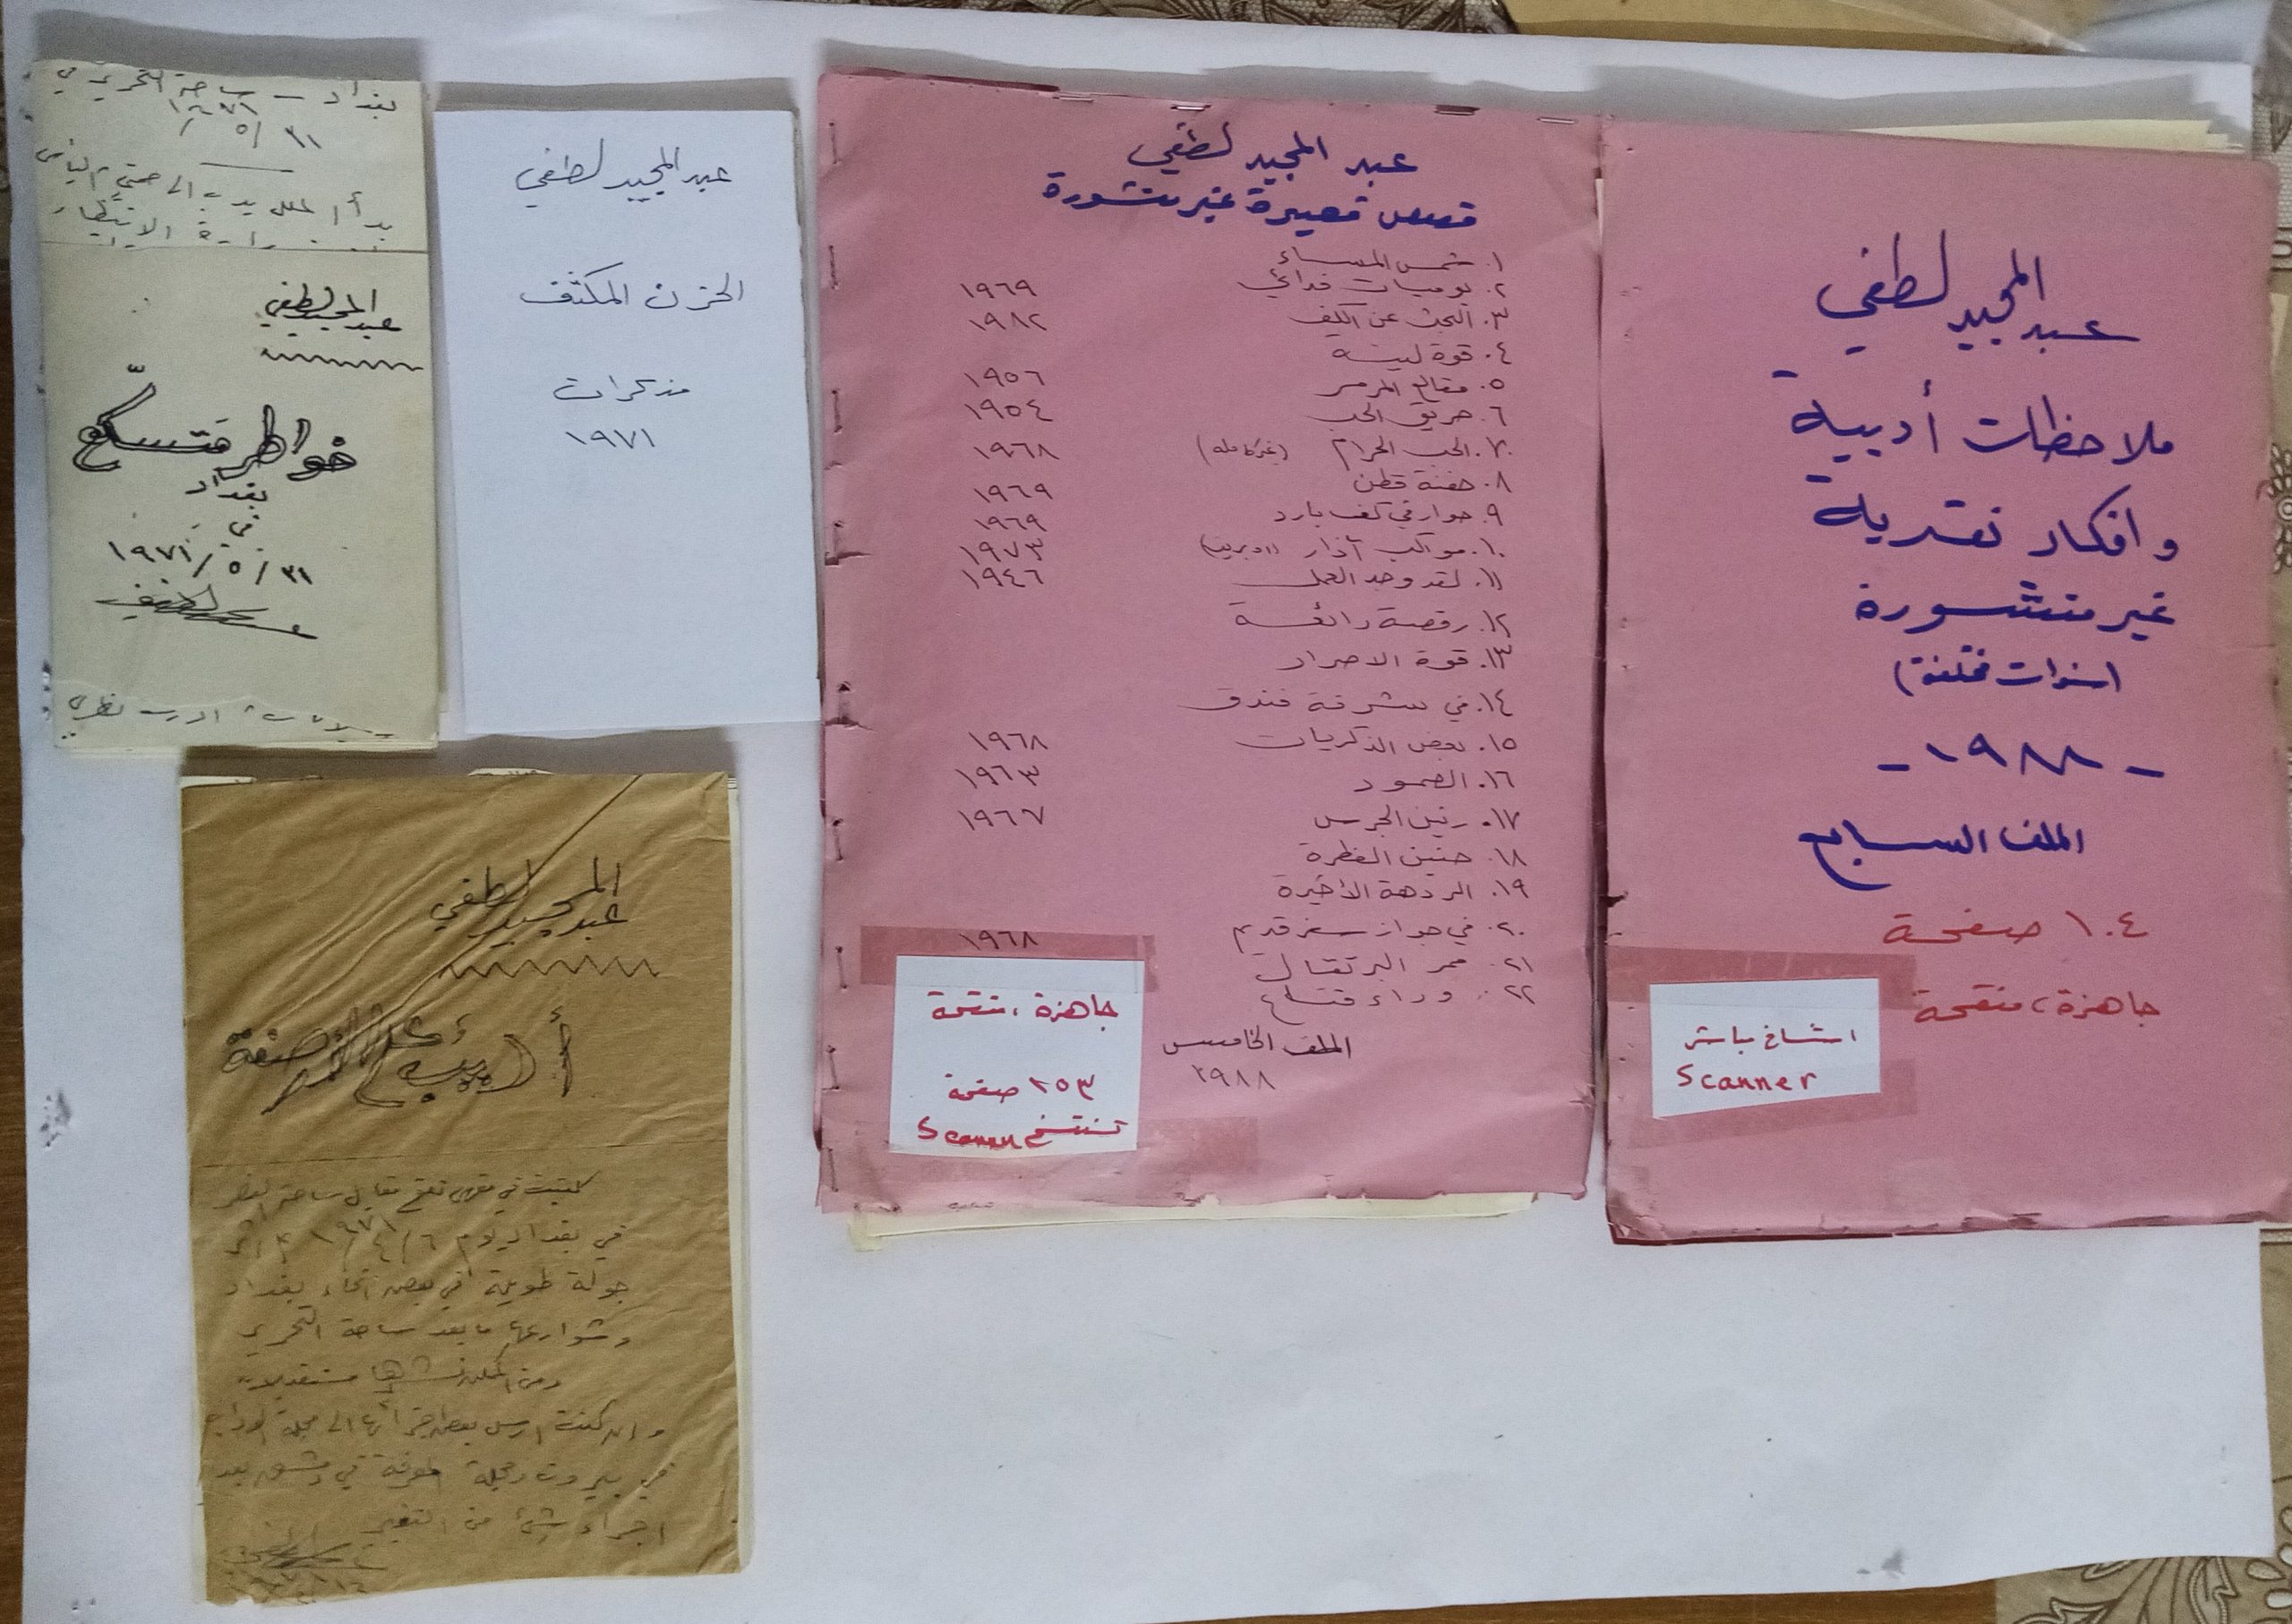 عبد المجيد لطفي
ملاحظات أدبية
وافكار نقدية
غير منشورة
(سنوات مختلفة)
- ١٩٨٨ -
الملف السابع
١٠٤ صفحة
جاهزة، منقحة
استنساخ مباشر
Scanner
عبد المجيد لطفي
قصص قصيرة غير منشورة
١. شمس المساء
٢. يوميات فدائي ١٩٦٩
٣. البحث عن الكيف ١٩٨٢
٤. قوة لينة
٥. مقالع المرمر ١٩٥٦
٦. حريق الحب ١٩٥٤
٧. الحب الحرام (غير كاملة) ١٩٦٨
٨. حفنة قطن ١٩٦٩
٩. حوار في كف بارد ١٩٦٩
١٠. مواكب آذار (اوبريت) ١٩٧٣
١١. لقد وجد العمل ١٩٤٦
١٢. رقصة رائعة
١٣. قوة الاصرار
١٤. في شرفة فندق
١٥. بعض الذكريات ١٩٦٨
١٦. الصمود ١٩٦٣
١٧. رنين الجرس ١٩٦٧
١٨. حنين الفطرة
١٩. الردهة الأخيرة
٢٠. في جواز سفر قديم ١٩٦٨
٢١. ممر البرتقال
٢٢. وراء قناع
الملف الخامس
١٩٨٨
جاهزة، منقحة
٢٥٣ صفحة
تستنسخ Scanner
عبد المجيد لطفي
الحزن المكثف
مذكرات
١٩٧١
بغداد - ساحة التحرير في
٣١/٥/١٩٧١
بدأ الملل يدب الى
الانتظار
عبد المجيد لطفي
خواطر متسكّع
بغداد
في
٣١/٥/١٩٧١
لطفي
عبد المجيد لطفي
أديب على الأرصفة
كتبت في مقهى تقع مقابل ساحة
في بغداد يوم ٦/٤/١٩٧١
جولة طويلة في بعض انحاء بغداد
وشوارعها ما بعد ساحة التحرير
ومن الممكن نشرها مستقبلا
في بيروت ومجلة المعرفة في دمشق بعد
اجراء شيء من التغيير